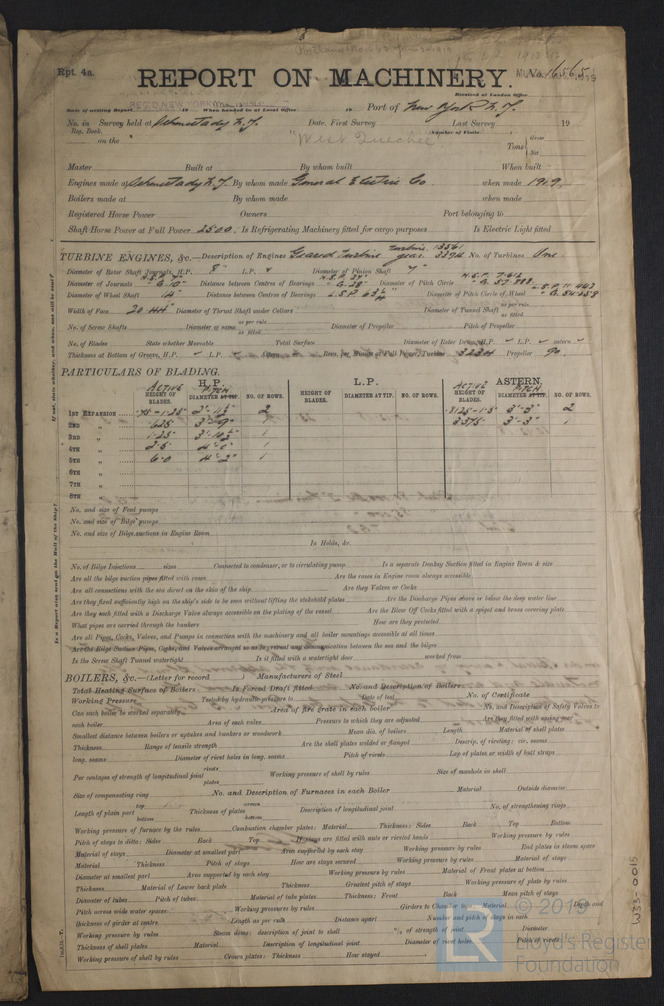 Rpt. 4a.
REPORT ON MACHINERY.
No. 16565
Received at London Office
Date of writing Report 19 When handed in at Local Office 19 Port of New York N.Y.
No. in Survey held at Schenectady N.Y. Date, First Survey Last Survey 19
Reg. Book. (Number of Visits
on the "West Quechee" Tons Gross Net
Master Built at By whom built When built
Engines made at Schenectady N.Y. By whom made General Electric Co when made 1919
Boilers made at By whom made when made
Registered Horse Power Owners Port belonging to
Shaft Horse Power at Full Power 2500 Is Refrigerating Machinery fitted for cargo purposes Is Electric Light fitted
TURBINE ENGINES, &c.—Description of Engines Geared Turbine turbine 13561 gear 3394 No. of Turbines One
Diameter of Rotor Shaft Journals, H.P. 8" L.P. Diameter of Pinion Shaft 7"
Diameter of Journals Distance between Centres of Bearings Diameter of Pitch Circle
Diameter of Wheel Shaft 14" Distance between Centres of Bearings L.S.P. Diameter of Pitch Circle of Wheel
Width of Face Diameter of Thrust Shaft under Collars Diameter of Tunnel Shaft as per rule as fitted
No. of Screw Shafts Diameter of same as per rule as fitted Diameter of Propeller Pitch of Propeller
No. of Blades State whether Moveable Total Surface Diameter of Rotor Drum, H.P. L.P. Astern
Thickness at Bottom of Groove, H.P. L.P. Astern Revs. per Minute at Full Power, Turbine 3234 Propeller 90
PARTICULARS OF BLADING.
H.P. L.P. ASTERN.
ACTIVE HEIGHT OF BLADES. PITCH DIAMETER AT TIP. NO. OF ROWS. HEIGHT OF BLADES. DIAMETER AT TIP. NO. OF ROWS. ACTIVE HEIGHT OF BLADES. PITCH DIAMETER AT TIP. NO. OF ROWS.
1ST EXPANSION .75-1.25 2 3'-3" 2
2ND " .625 3'-9" 1 3.375 3'-3" 1
3RD " 1.25 1
4TH " 2.5 1
5TH " 6.0 4'-2" 1
6TH "
7TH "
8TH "
No. and size of Feed pumps
No. and size of Bilge pumps
No. and size of Bilge suctions in Engine Room
In Holds, &c.
No. of Bilge Injections sizes Connected to condenser, or to circulating pump Is a separate Donkey Suction fitted in Engine Room & size
Are all the bilge suction pipes fitted with roses Are the roses in Engine room always accessible
Are all connections with the sea direct on the skin of the ship Are they Valves or Cocks
Are they fixed sufficiently high on the ship's side to be seen without lifting the stokehold plates Are the Discharge Pipes above or below the deep water line
Are they each fitted with a Discharge Valve always accessible on the plating of the vessel Are the Blow Off Cocks fitted with a spigot and brass covering plate
What pipes are carried through the bunkers How are they protected
Are all Pipes, Cocks, Valves, and Pumps in connection with the machinery and all boiler mountings accessible at all times
Are the Bilge Suction Pipes, Cocks, and Valves arranged so as to prevent any communication between the sea and the bilges
Is the Screw Shaft Tunnel watertight Is it fitted with a watertight door worked from
BOILERS, &c.—(Letter for record ) Manufacturers of Steel
Total Heating Surface of Boilers Is Forced Draft fitted No. and Description of Boilers
Working Pressure Tested by hydraulic pressure to Date of test No. of Certificate
Can each boiler be worked separately Area of fire grate in each boiler No. and Description of Safety Valves to
each boiler Area of each valve Pressure to which they are adjusted Are they fitted with easing gear
Smallest distance between boilers or uptakes and bunkers or woodwork Mean dia. of boilers Length Material of shell plates
Thickness Range of tensile strength Are the shell plates welded or flanged Descrip. of riveting: cir. seams
long. seams Diameter of rivet holes in long. seams Pitch of rivets Lap of plates or width of butt straps
Per centages of strength of longitudinal joint rivets plates Working pressure of shell by rules Size of manhole in shell
Size of compensating ring No. and Description of Furnaces in each Boiler Material Outside diameter
Length of plain part top bottom Thickness of plates crown bottom Description of longitudinal joint No. of strengthening rings
Working pressure of furnace by the rules Combustion chamber plates: Material Thickness: Sides Back Top Bottom
Pitch of stays to ditto: Sides Back Top If stays are fitted with nuts or riveted heads Working pressure by rules
Material of stays Diameter at smallest part Area supported by each stay Working pressure by rules End plates in steam space
Material Thickness Pitch of stays How are stays secured Working pressure by rules Material of stays
Diameter at smallest part Area supported by each stay Working pressure by rules Material of Front plates at bottom
Thickness Material of Lower back plate Thickness Greatest pitch of stays Working pressure of plate by rules
Diameter of tubes Pitch of tubes Material of tube plates Thickness: Front Back Mean pitch of stays
Pitch across wide water spaces Working pressures by rules Girders to Chamber tops: Material Depth and
thickness of girder at centre Length as per rule Distance apart Number and pitch of stays in each
Working pressure by rules Steam dome: description of joint to shell % of strength of joint Diameter
Thickness of shell plates Material Description of longitudinal joint Diameter of rivet holes Pitch of rivets
Working pressure of shell by rules Crown plates: Thickness How stayed
333-0015
© 2019
LR
Lloyd's Register
Foundation